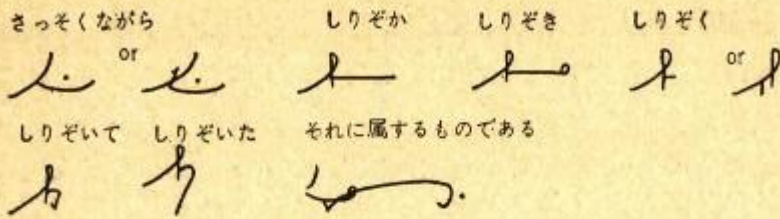 さっそくながら しりぞか しりぞき しりぞく
or or
しりぞいて しりぞいた それに属するものである